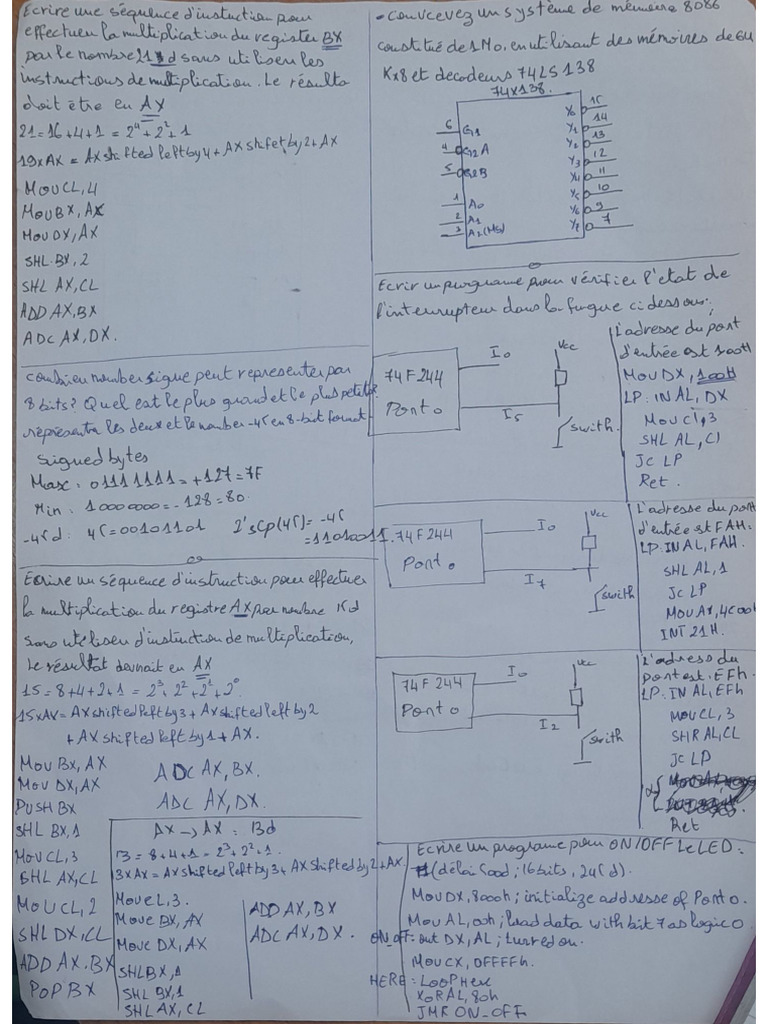 Ecrire une séquence d'instruction pour
effectuer la multiplication du register BX
par le nombre 21 d sans utiliser les
instructions de multiplication. Le résulta
doit être en AX
21 = 16+4+1 = 2^4+2^2+1
19xAX = AX shifted left by 4 + AX shifet by 2 + AX
MOV CL, 4
MOV BX, AX
MOV DX, AX
SHL BX, 2
SHL AX, CL
ADD AX, BX
ADC AX, DX.
combien number signe peut representer par
8 bits? Quel est le plus grand et le plus petit?
représenta les deux et le number -45 en 8-bit format
Signed bytes
Max: 01111111 = +127 = 7F
Min: 10000000 = -128 = 80.
-45d: 45 = 00101101 2's Cp(45) = -45
= 11010011.
Ecrire un séquence d'instruction pour effectuer
la multiplication du registre AX par nombre 15d
sans uteliser d'instruction de multiplication,
Le résultat devrait en AX
15 = 8+4+2+1 = 2^3+2^2+2^1+2^0
15xAX = AX shifted left by 3 + AX shifted left by 2
+ AX shifted left by 1 + AX.
MOV BX, AX
MOV DX, AX
PUSH BX
SHL BX, 1
MOV CL, 3
SHL AX, CL
MOV CL, 2
SHL DX, CL
ADD AX, BX
POP BX
ADC AX, BX.
ADC AX, DX.
AX → AX : 13d
13 = 8+4+1 = 2^3+2^2+1.
3xAX = AX shifted left by 3 + AX shifted left by 2 + AX.
Move L, 3.
Move BX, AX
Move DX, AX
SHL BX, 1
SHL BX, 1
SHL AX, CL
ADD AX, BX
ADC AX, DX.
- Concevez un système de mémoire 8086
constitué de 1Mo, en utilisant des mémoires de 64
Kx8 et decodeurs 74LS138
74X138.
6 G1
4 G2A
5 G2B
1 A0
2 A1
3 A2
Y0 15
Y1 14
Y2 13
Y3 12
Y4 11
Y5 10
Y6 9
Y7 7
Ecrir un programe pour vérifier l'état de
l'interrupteur dans la fingue ci dessous:
74F244
Port 0
I0
I5
Vcc
swith.
L'adresse du port
d'entrée est 100H
MOV DX, 100H
LP: IN AL, DX
MOV Cl, 3
SHL AL, Cl
JC LP
Ret.
74F244
Port 0
I0
I7
Vcc
swith
L'adresse du port
d'entrée est FAH:
LP: IN AL, FAH.
SHL AL, 1
JC LP
MOV AX, 4C00H
INT 21H.
74F244
Port 0
I0
I2
Vcc
swith
L'adresse du
port est EFh.
LP: IN AL, EFh
MOV CL, 3
SHR AL, CL
JC LP
Ret
Ecrire un programe pour ON/OFF Le LED:
(délai 500d; 16 bits, 245d).
MOV DX, 800h; initialize addresse of Port 0.
MOV AL, 00h; load data with bit 7 as logic 0
ON_OFF: out DX, AL; turned on.
MOV CX, 0FFFFh.
HERE: LOOP Here
XOR AL, 80h
JMP ON_OFF